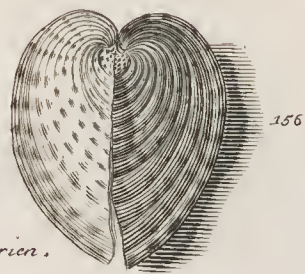 156
rien.